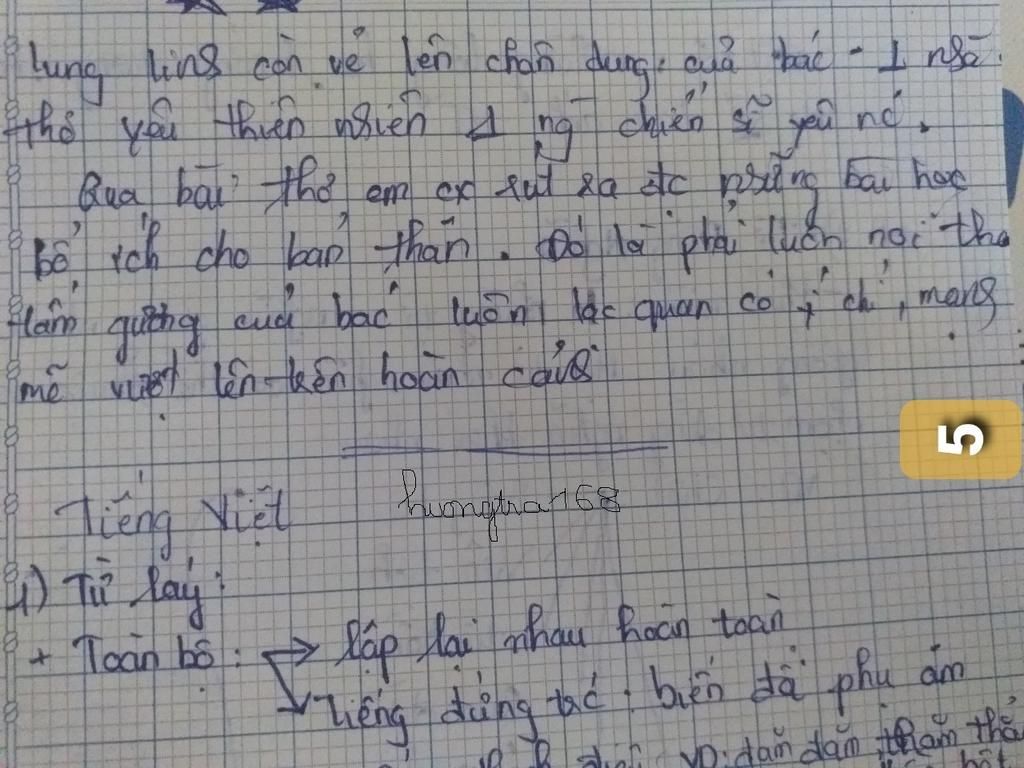 lung ling còn vẽ lên chân dung của bác - 1 ngà
thơ yêu thiên nhiên 1 ng chiến sĩ yêu nc.
Qua bài thơ em cx rút ra đc những bài học
bổ ích cho bản thân. Đó là phải luôn noi theo
tấm gương của bác luôn lạc quan có ý chí, mạng
mẽ vượt lên trên hoàn cảng
5
Tiếng Việt
huongtra168
1) Từ láy:
+ Toàn bộ: → lặp lại nhau hoàn toàn
→ Tiếng đứng trc biến đổi phụ âm
VD: dăn dăn